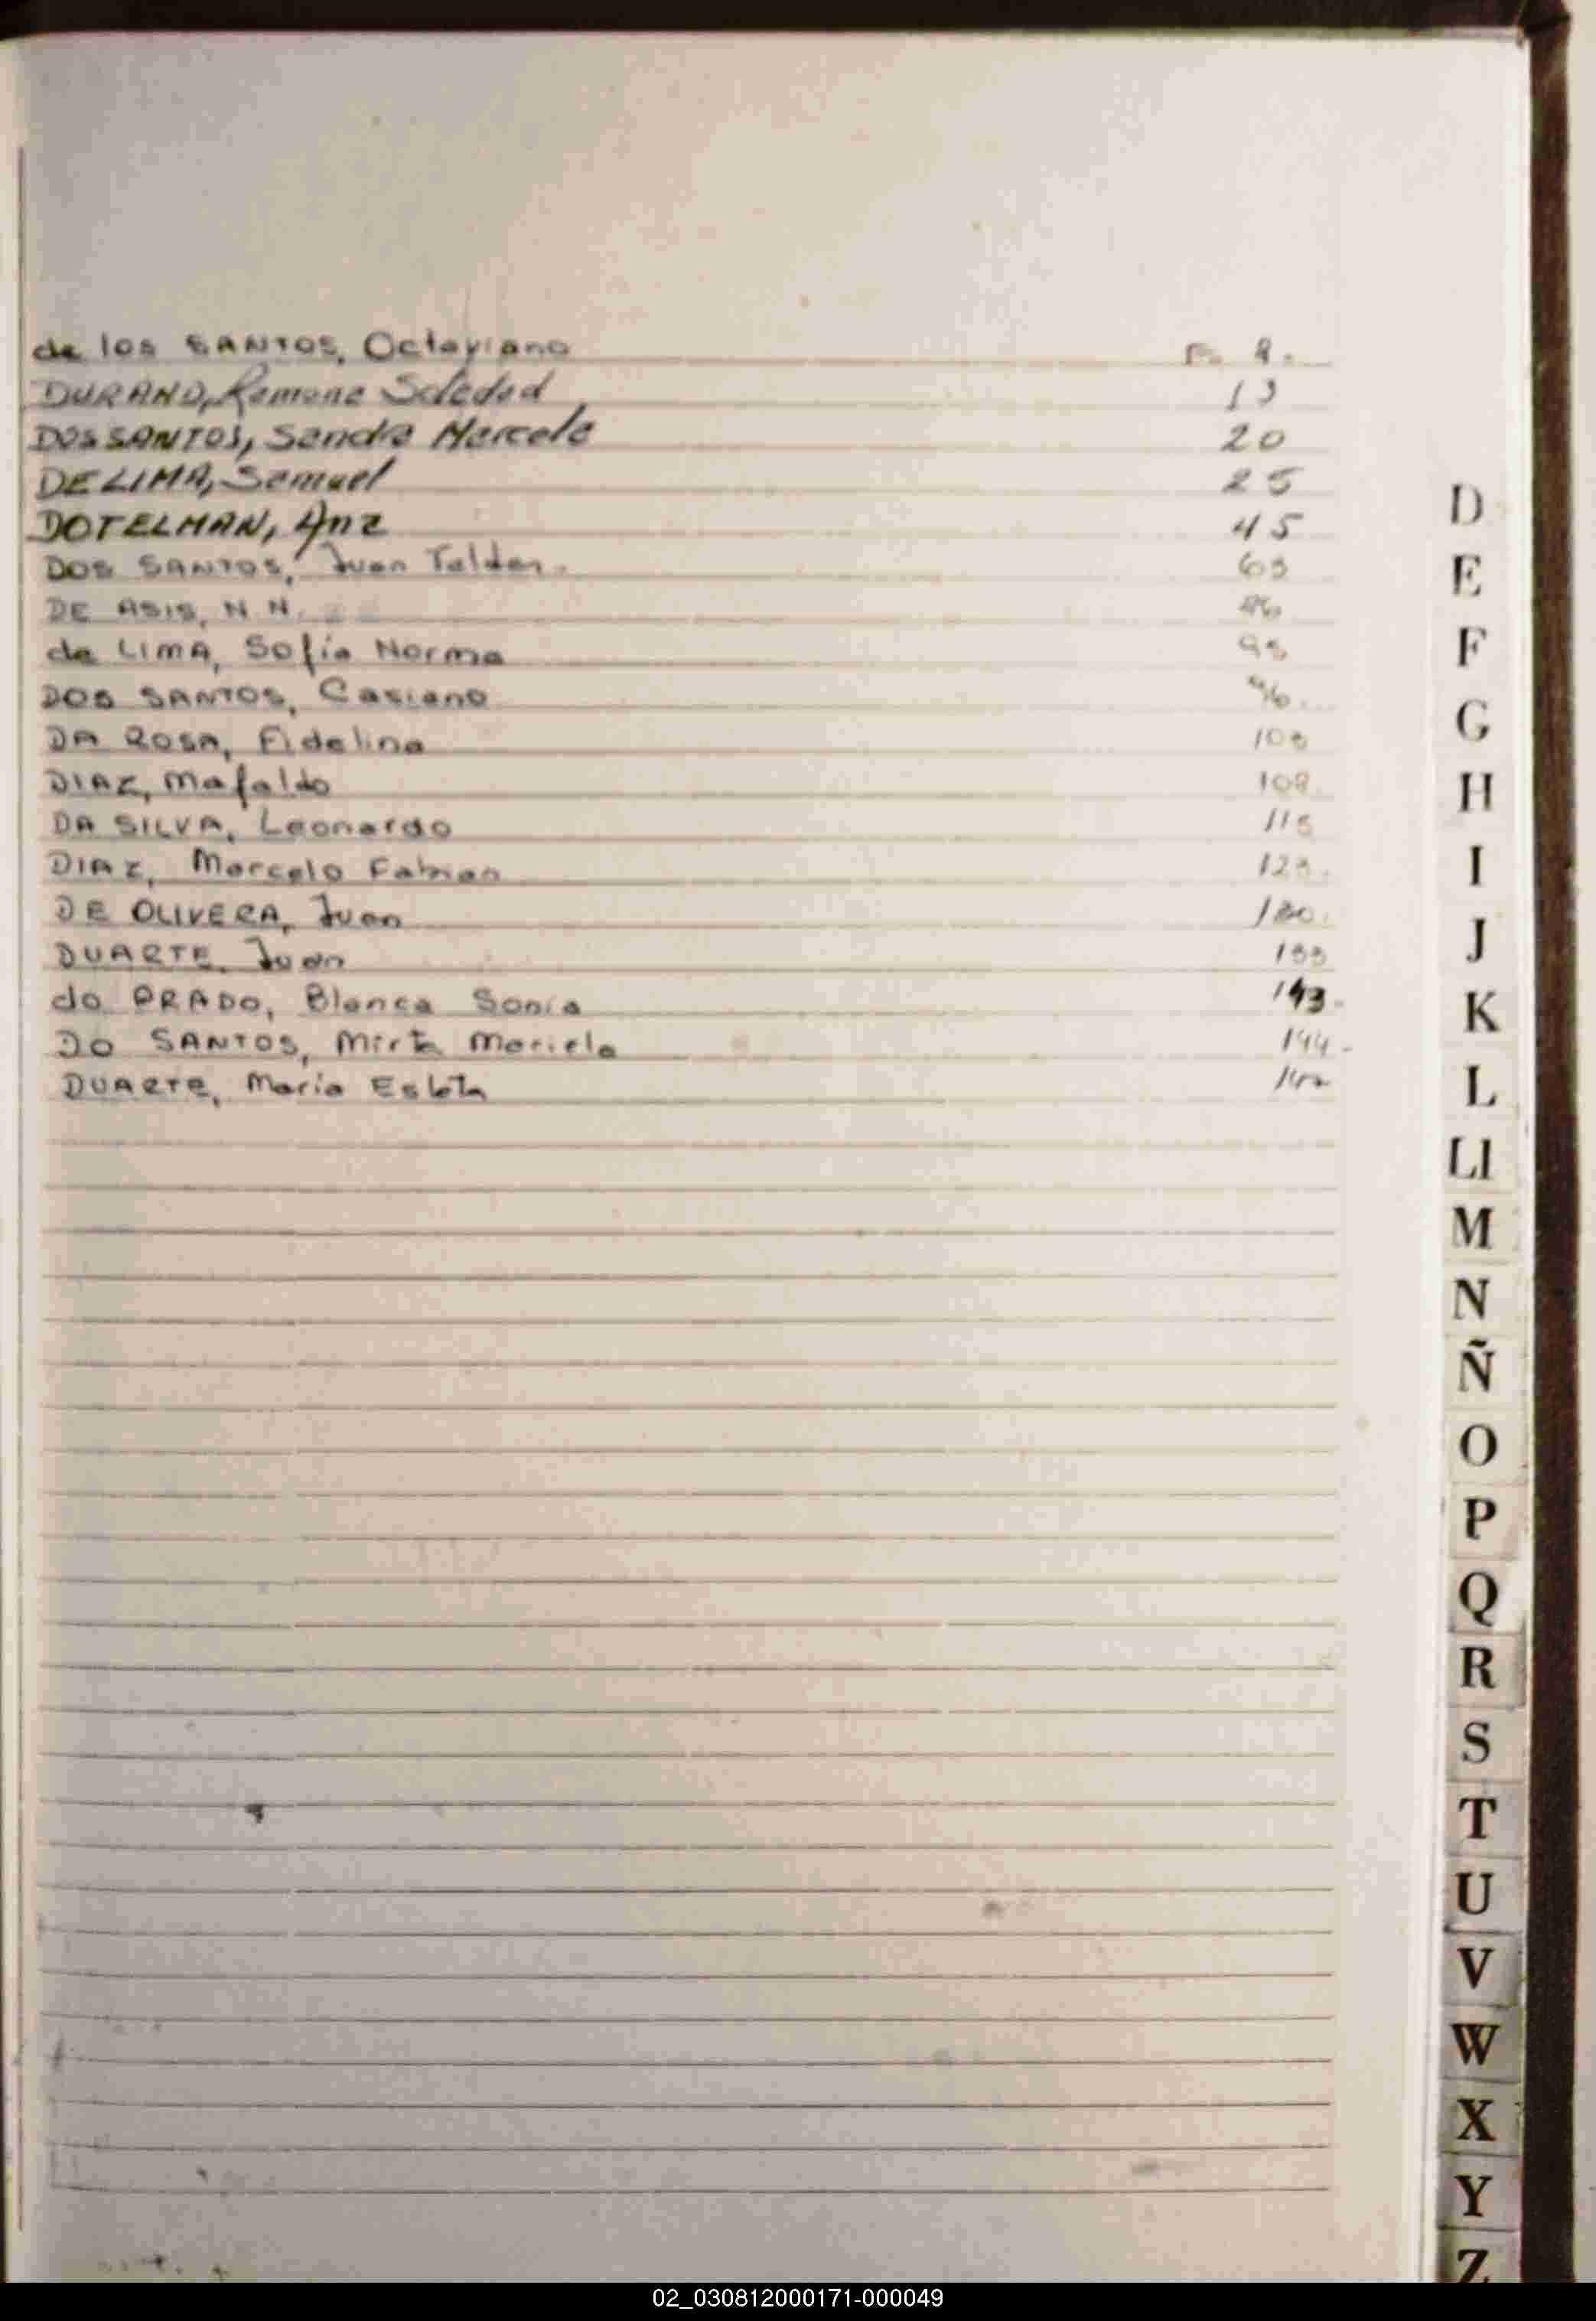 de los SANTOS, Octaviano F. 9.
DURAND, Ramona Soledad 13
DOS SANTOS, Sandra Marcela 20
DE LIMA, Samuel 25
DOTELMAN, Ana 45
DOS SANTOS, Juan
DE ASIS, N.N.
de LIMA, Sofía Norma 95
DOS SANTOS, Casiano 96.
DA ROSA, Fidelina
DIAZ, Mafaldo 108
DA SILVA, Leonardo
DIAZ, Marcelo Fabian
DE OLIVERA, Juan
DUARTE, Juan
do PRADO, Blanca Sonia 143.
DO SANTOS, Mirta Mariela 144.
DUARTE, Maria
D
E
F
G
H
I
J
K
L
Ll
M
N
Ñ
O
P
Q
R
S
T
U
V
W
X
Y
Z
02_030812000171-000049